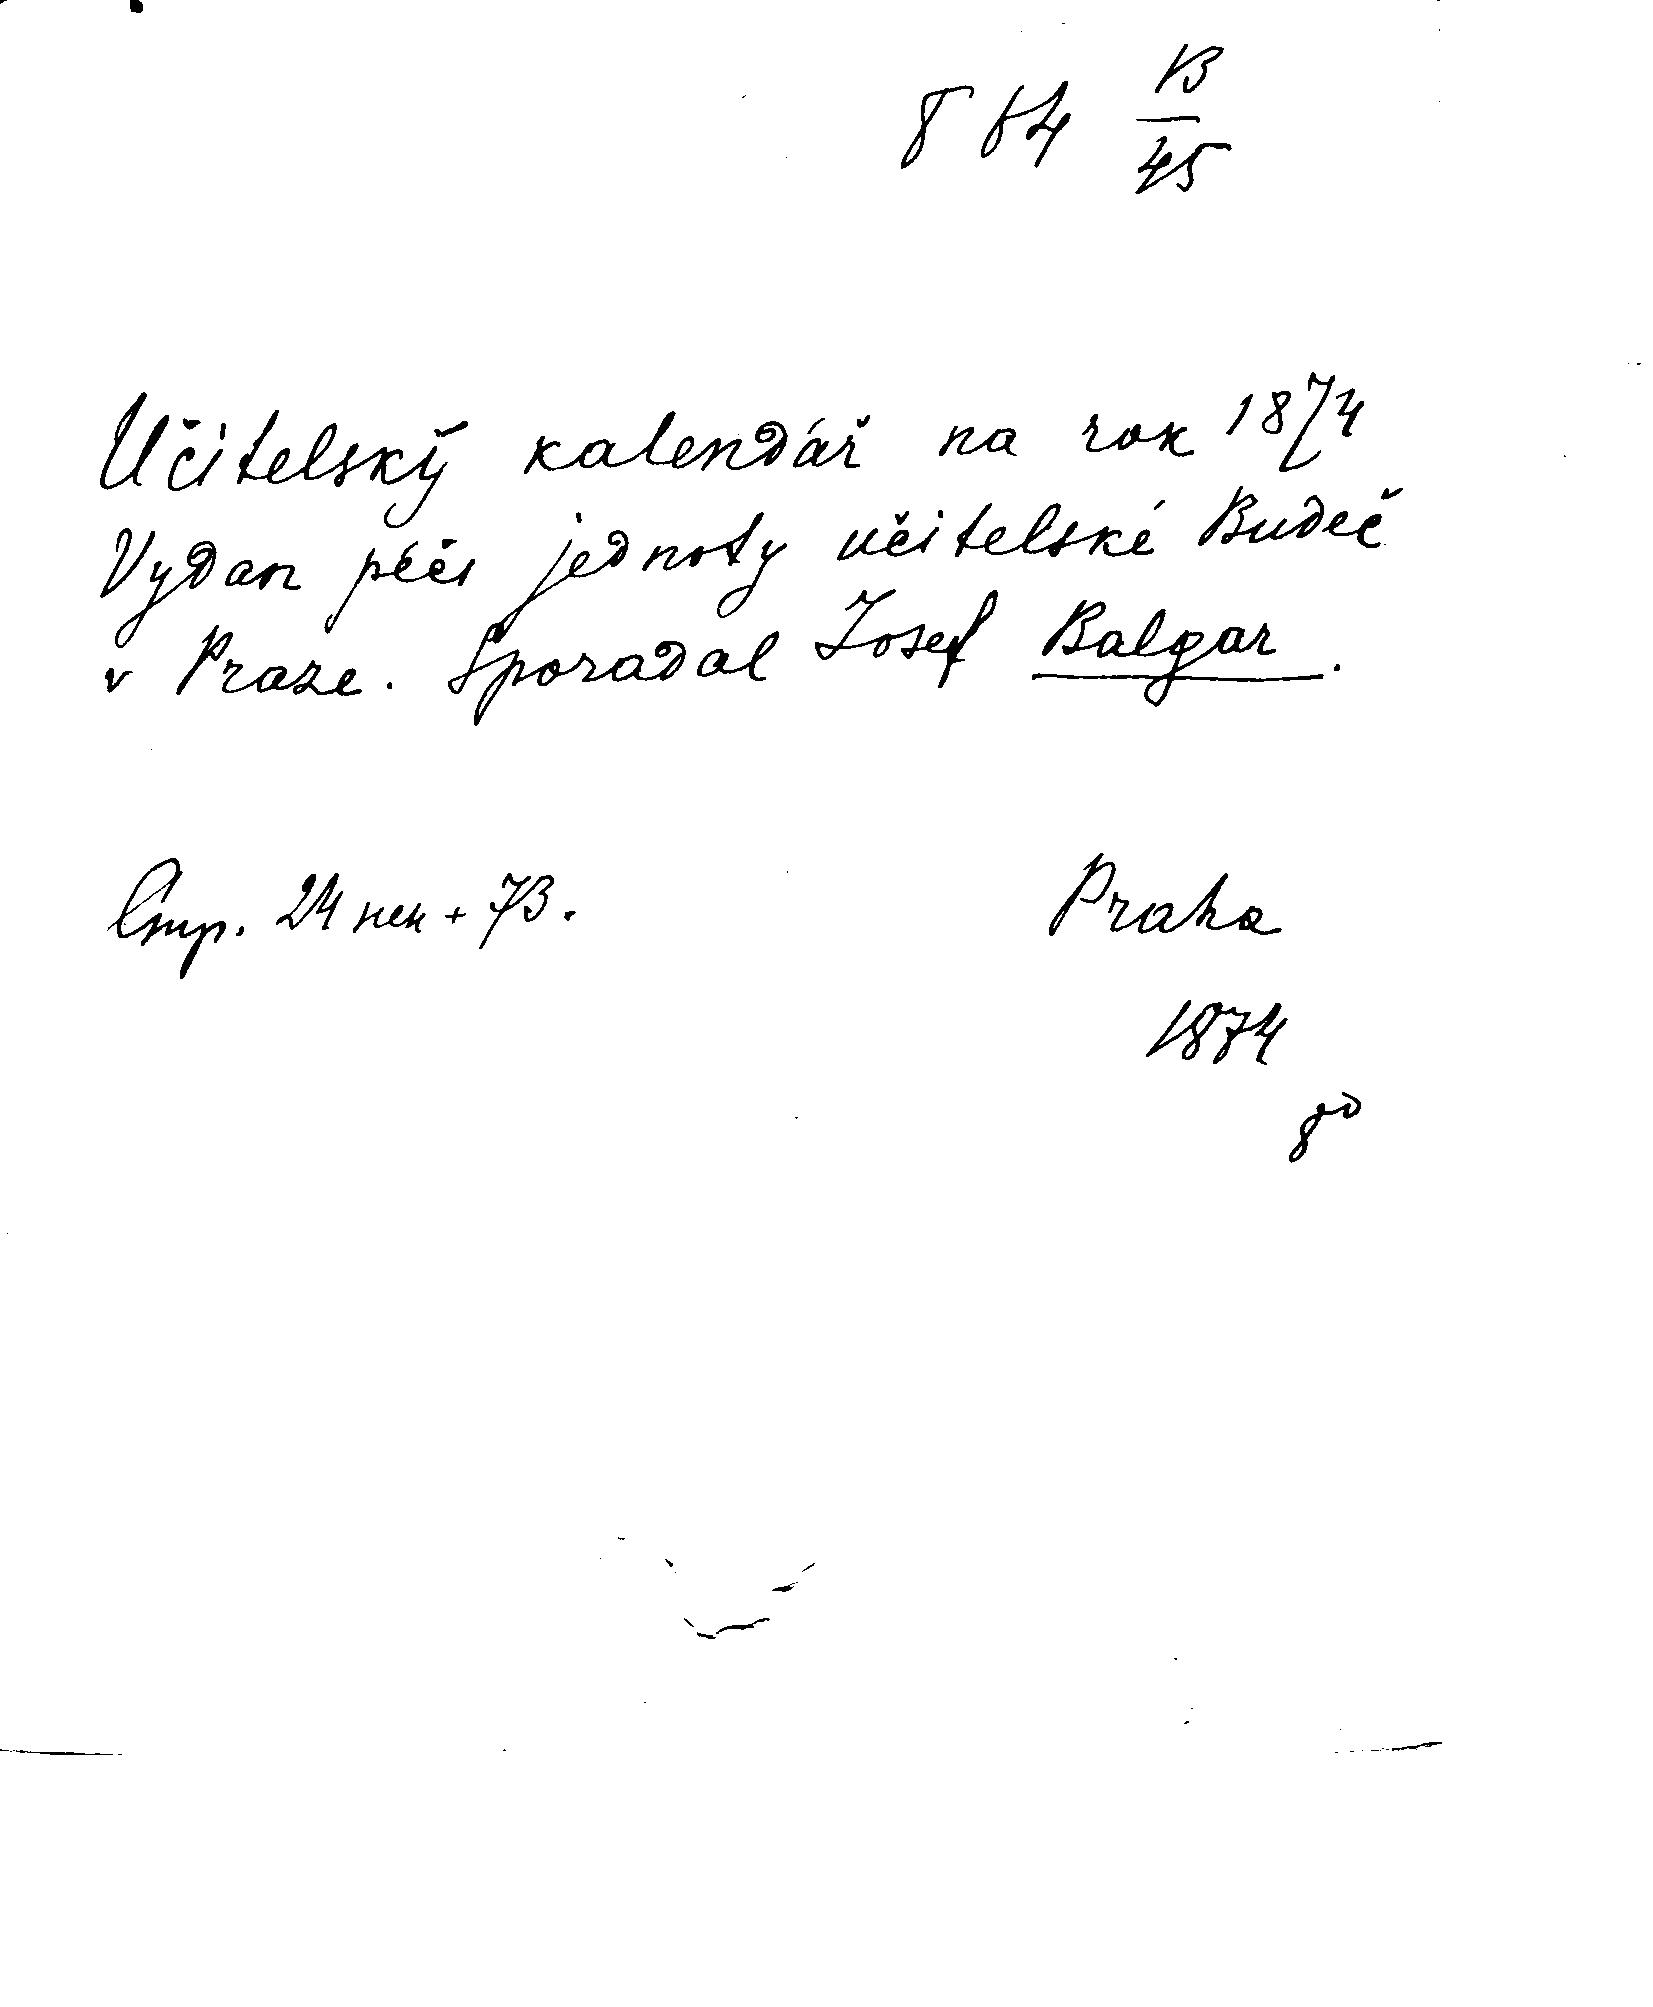 8 64 B/45
Učitelský kalendář na rok 1874
Vydan péčí jednoty učitelské Budeč
v Praze. Sporadal Josef Balgar.
Стр. 24 нен + 73. Praha
1874
8º